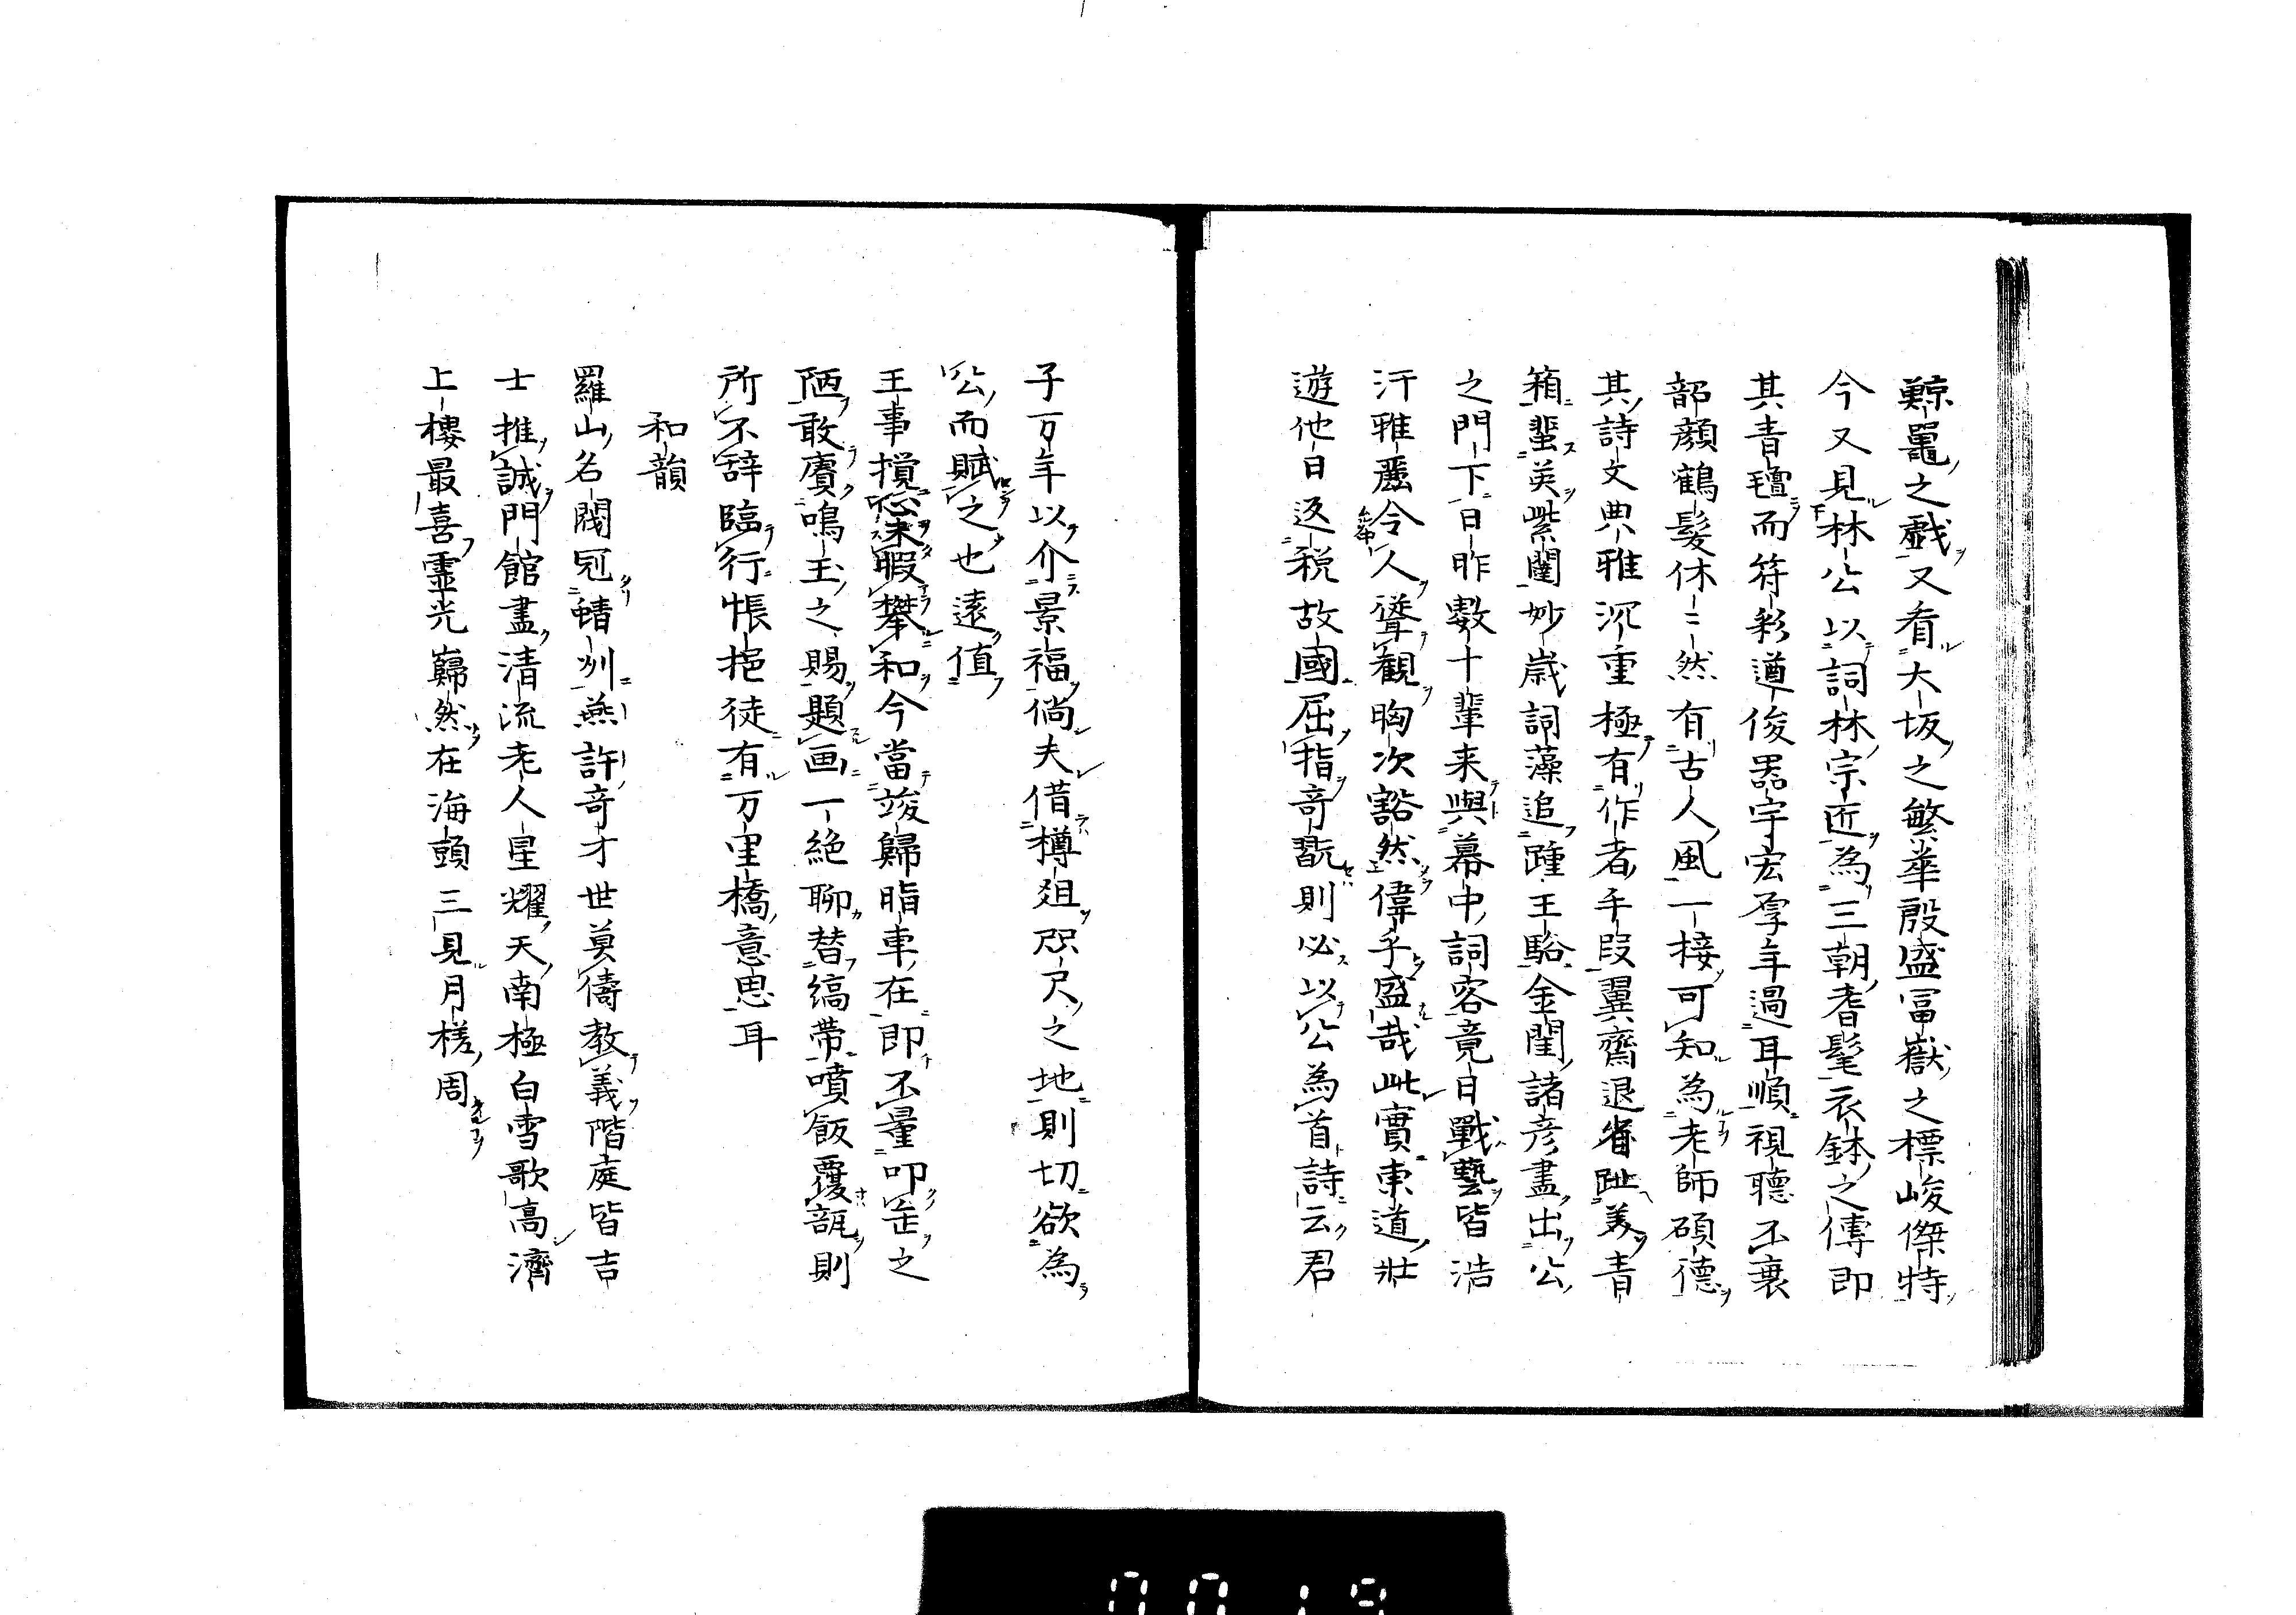 鯨鼉之戯又看大坂之繁華殷盛冨嶽之標峻傑特
今又見林公以詞林宗匠為三朝耆髦衣鉢之傳即
其青氊而符彩遒俊器宇宏厚年過耳順視聴不衰
韶顔鶴髪休〻然有古人風一接可知為老師碩德
其詩文典雅沉重極有作者手段翼齋退省趾美青
箱蜚英紫闥妙歳詞藻追踵王駱金閨諸彦盡出公
之門下日昨數十輩来與幕中詞客竟日戰藝皆浩
汗雅麗令人聳観胸次豁然偉乎盛哉此實東道壮
遊他日返税故國屈指奇翫則必以公為首詩云君
子万年以介景福倘夫借樽爼咫尺之地則切欲為
公而賦之也遠值
王事攪惱未暇攀和今當竣歸脂車在即不量叩缶之
陋敢賡鳴玉之賜題画一絶聊替縞帶噴飯覆瓿則
所不辞臨行悵挹徒有万里橋意思耳
和韻
羅山名閥冠蜻洲燕許奇才世莫儔教義階庭皆吉
士推誠門館盡清流老人星耀天南極白雪歌高濟
上樓最喜霊光巋然在海頭三見月槎周
0019